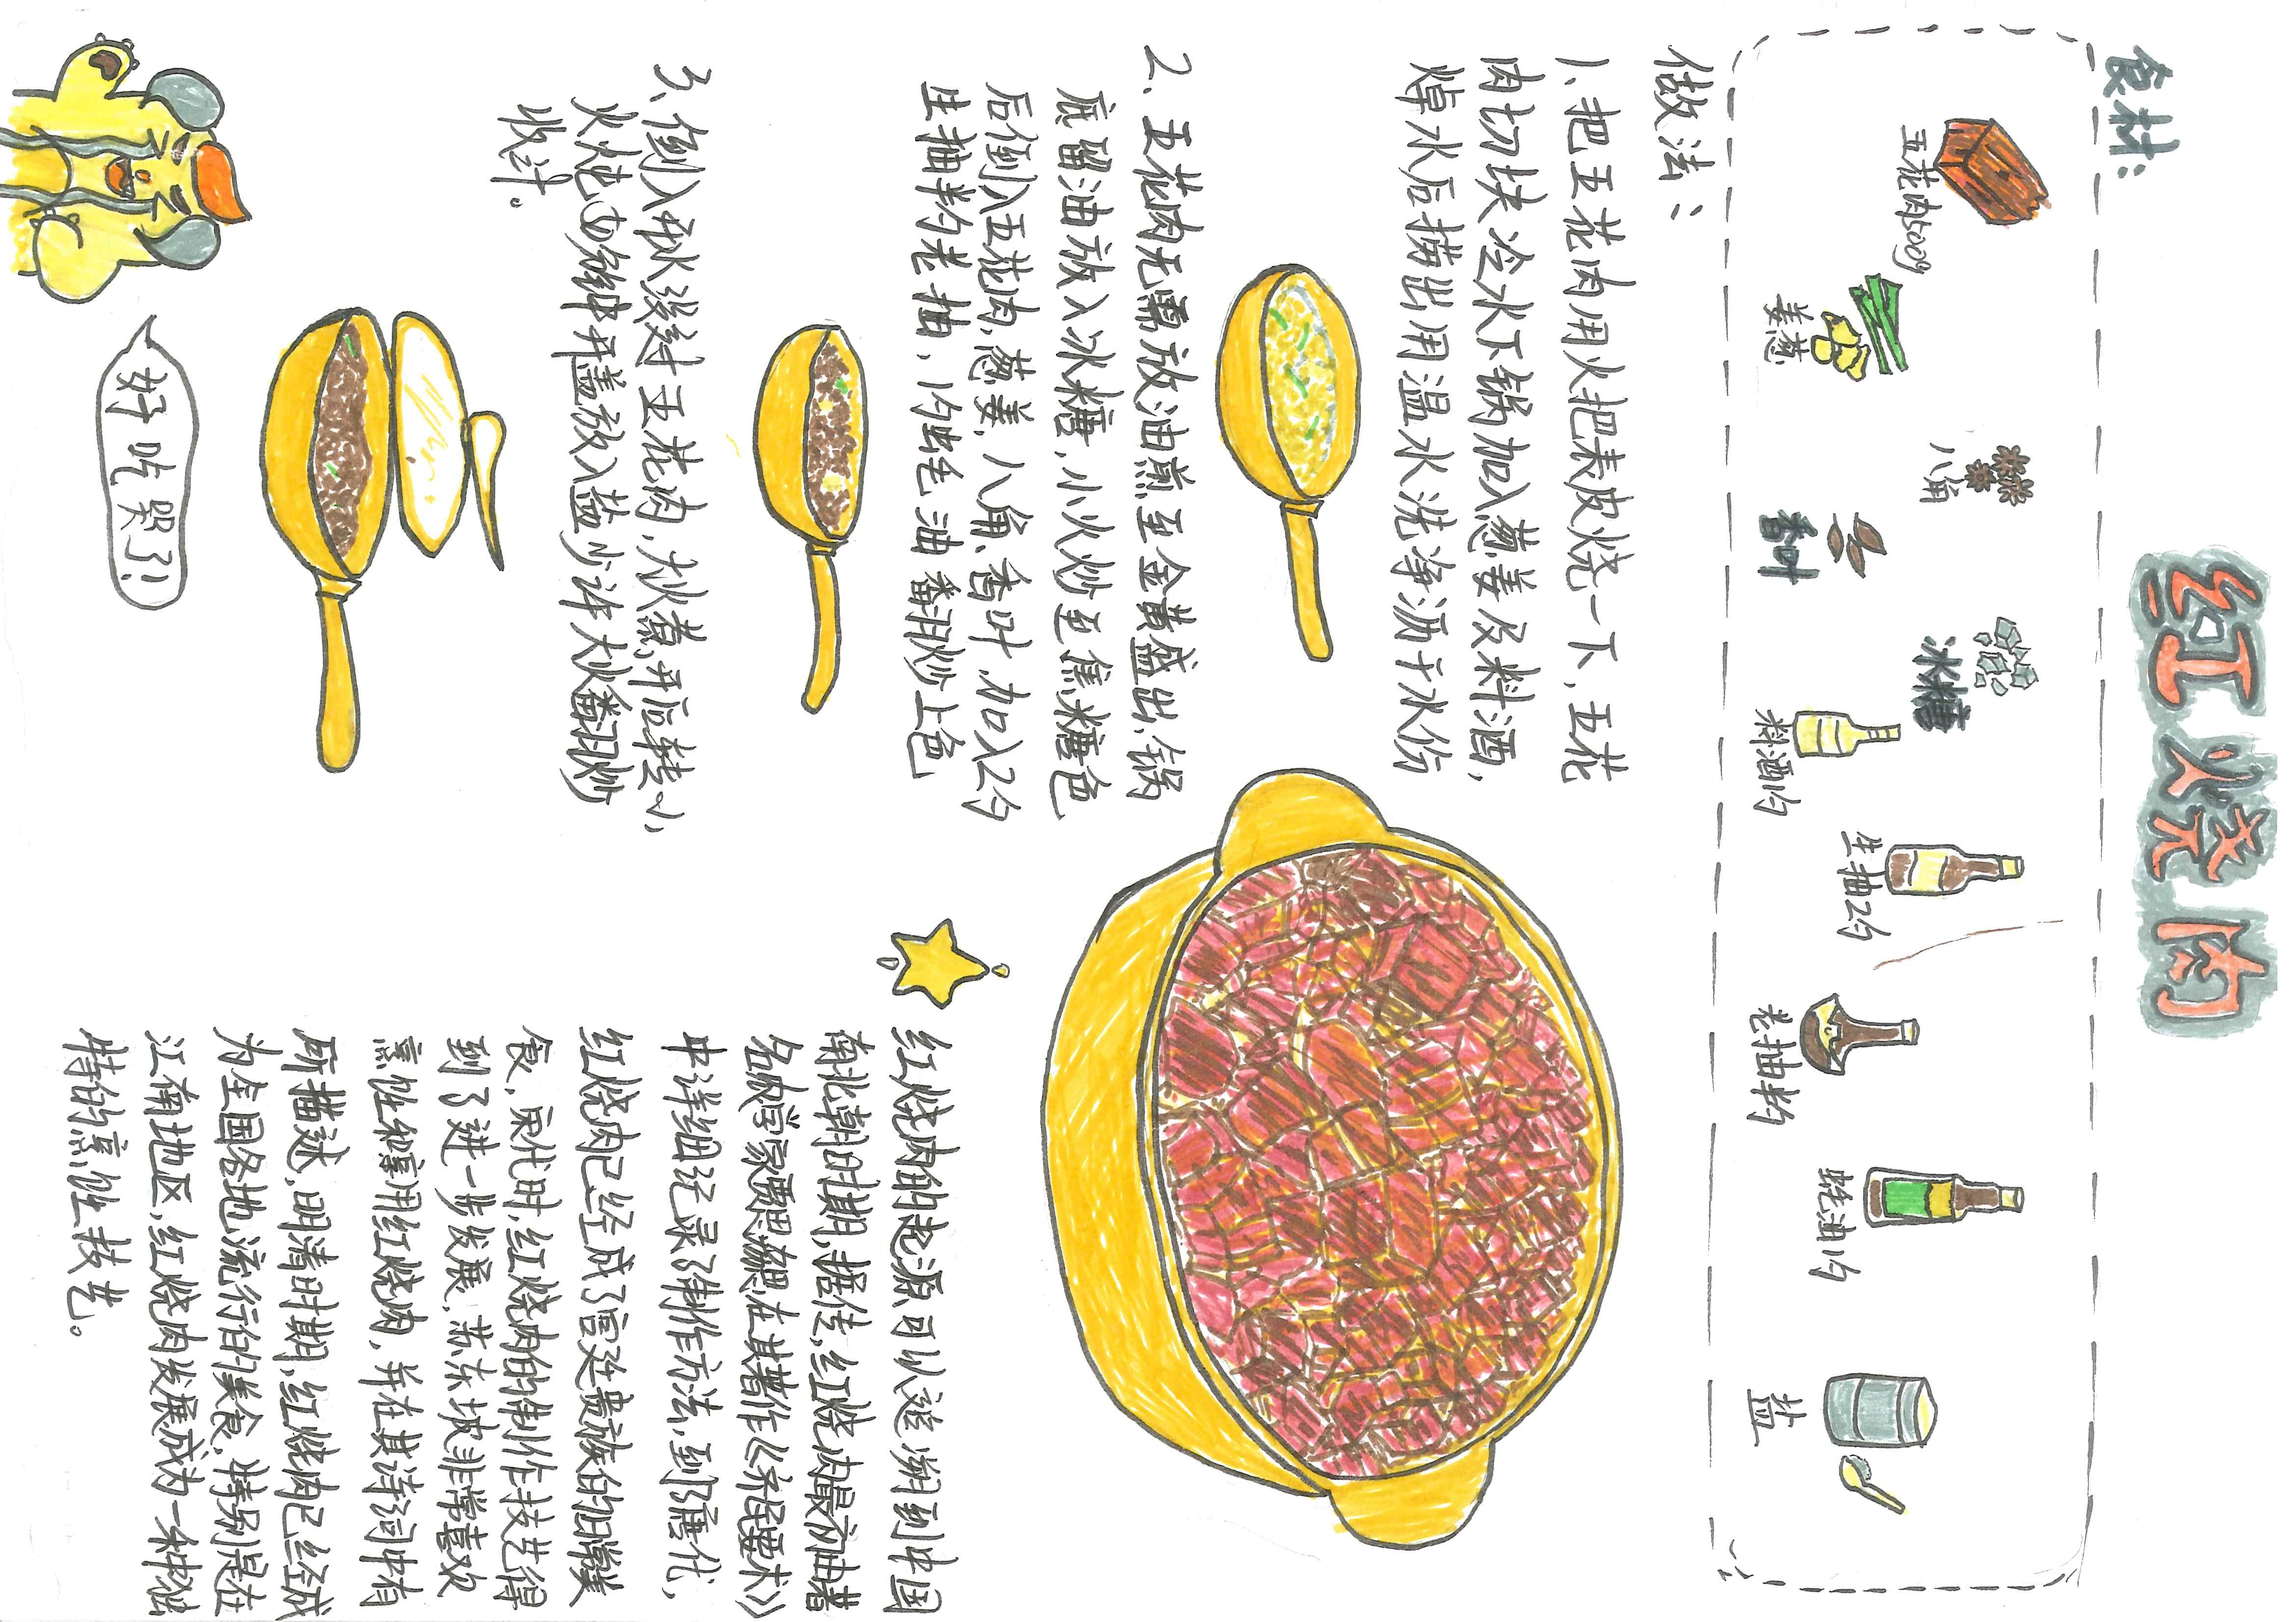 红烧肉
食材：
五花肉500g
姜葱
八角
香叶
冰糖
料酒1勺
生抽2勺
老抽半勺
蚝油1勺
盐
做法：
1、把五花肉用火把表皮烧一下，五花
肉切块冷水下锅加入葱姜及料酒，
焯水后捞出用温水洗净沥干水份
2、五花肉无需放油煎至金黄盛出，锅
底留油放入冰糖，小火炒至焦糖色
后倒入五花肉，葱姜，八角，香叶，加入2勺
生抽半勺老抽，1勺蚝油翻炒上色
3、倒入开水没过五花肉，大火煮开后转小
火炖40分钟开盖放入盐少许大火翻炒
收汁。
好吃哭了！
红烧肉的起源可以追溯到中国
南北朝时期，据传，红烧肉最初由著
名农学家贾思勰在其著作《齐民要术》
中详细记录了制作方法，到了唐代，
红烧肉已经成了宫廷贵族的日常美
食，宋代时，红烧肉的制作技艺得
到了进一步发展，苏东坡非常喜欢
烹饪和享用红烧肉，并在其诗词中有
所描述，明清时期，红烧肉已经成
为全国各地流行的美食，特别是在
江南地区，红烧肉发展成为一种独
特的烹饪技艺。